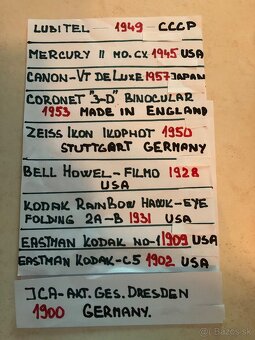 LUBITEL 1949 CCCP
MERCURY II NO.CX 1945 USA
CANON-VT DE LUXE 1957 JAPAN
CORONET "3-D" BINOCULAR
1953 MADE IN ENGLAND
ZEISS IKON IKOPHOT 1950
STUTTGART GERMANY
BELL HOWEL-FILMO 1928
USA
KODAK RAINBOW HAWK-EYE
FOLDING 2A-B 1931 USA
EASTMAN KODAK NO-1 1909 USA
EASTMAN KODAK-C5 1902 USA
ICA-AKT.GES.DRESDEN
1900 GERMANY.
bazar.sk